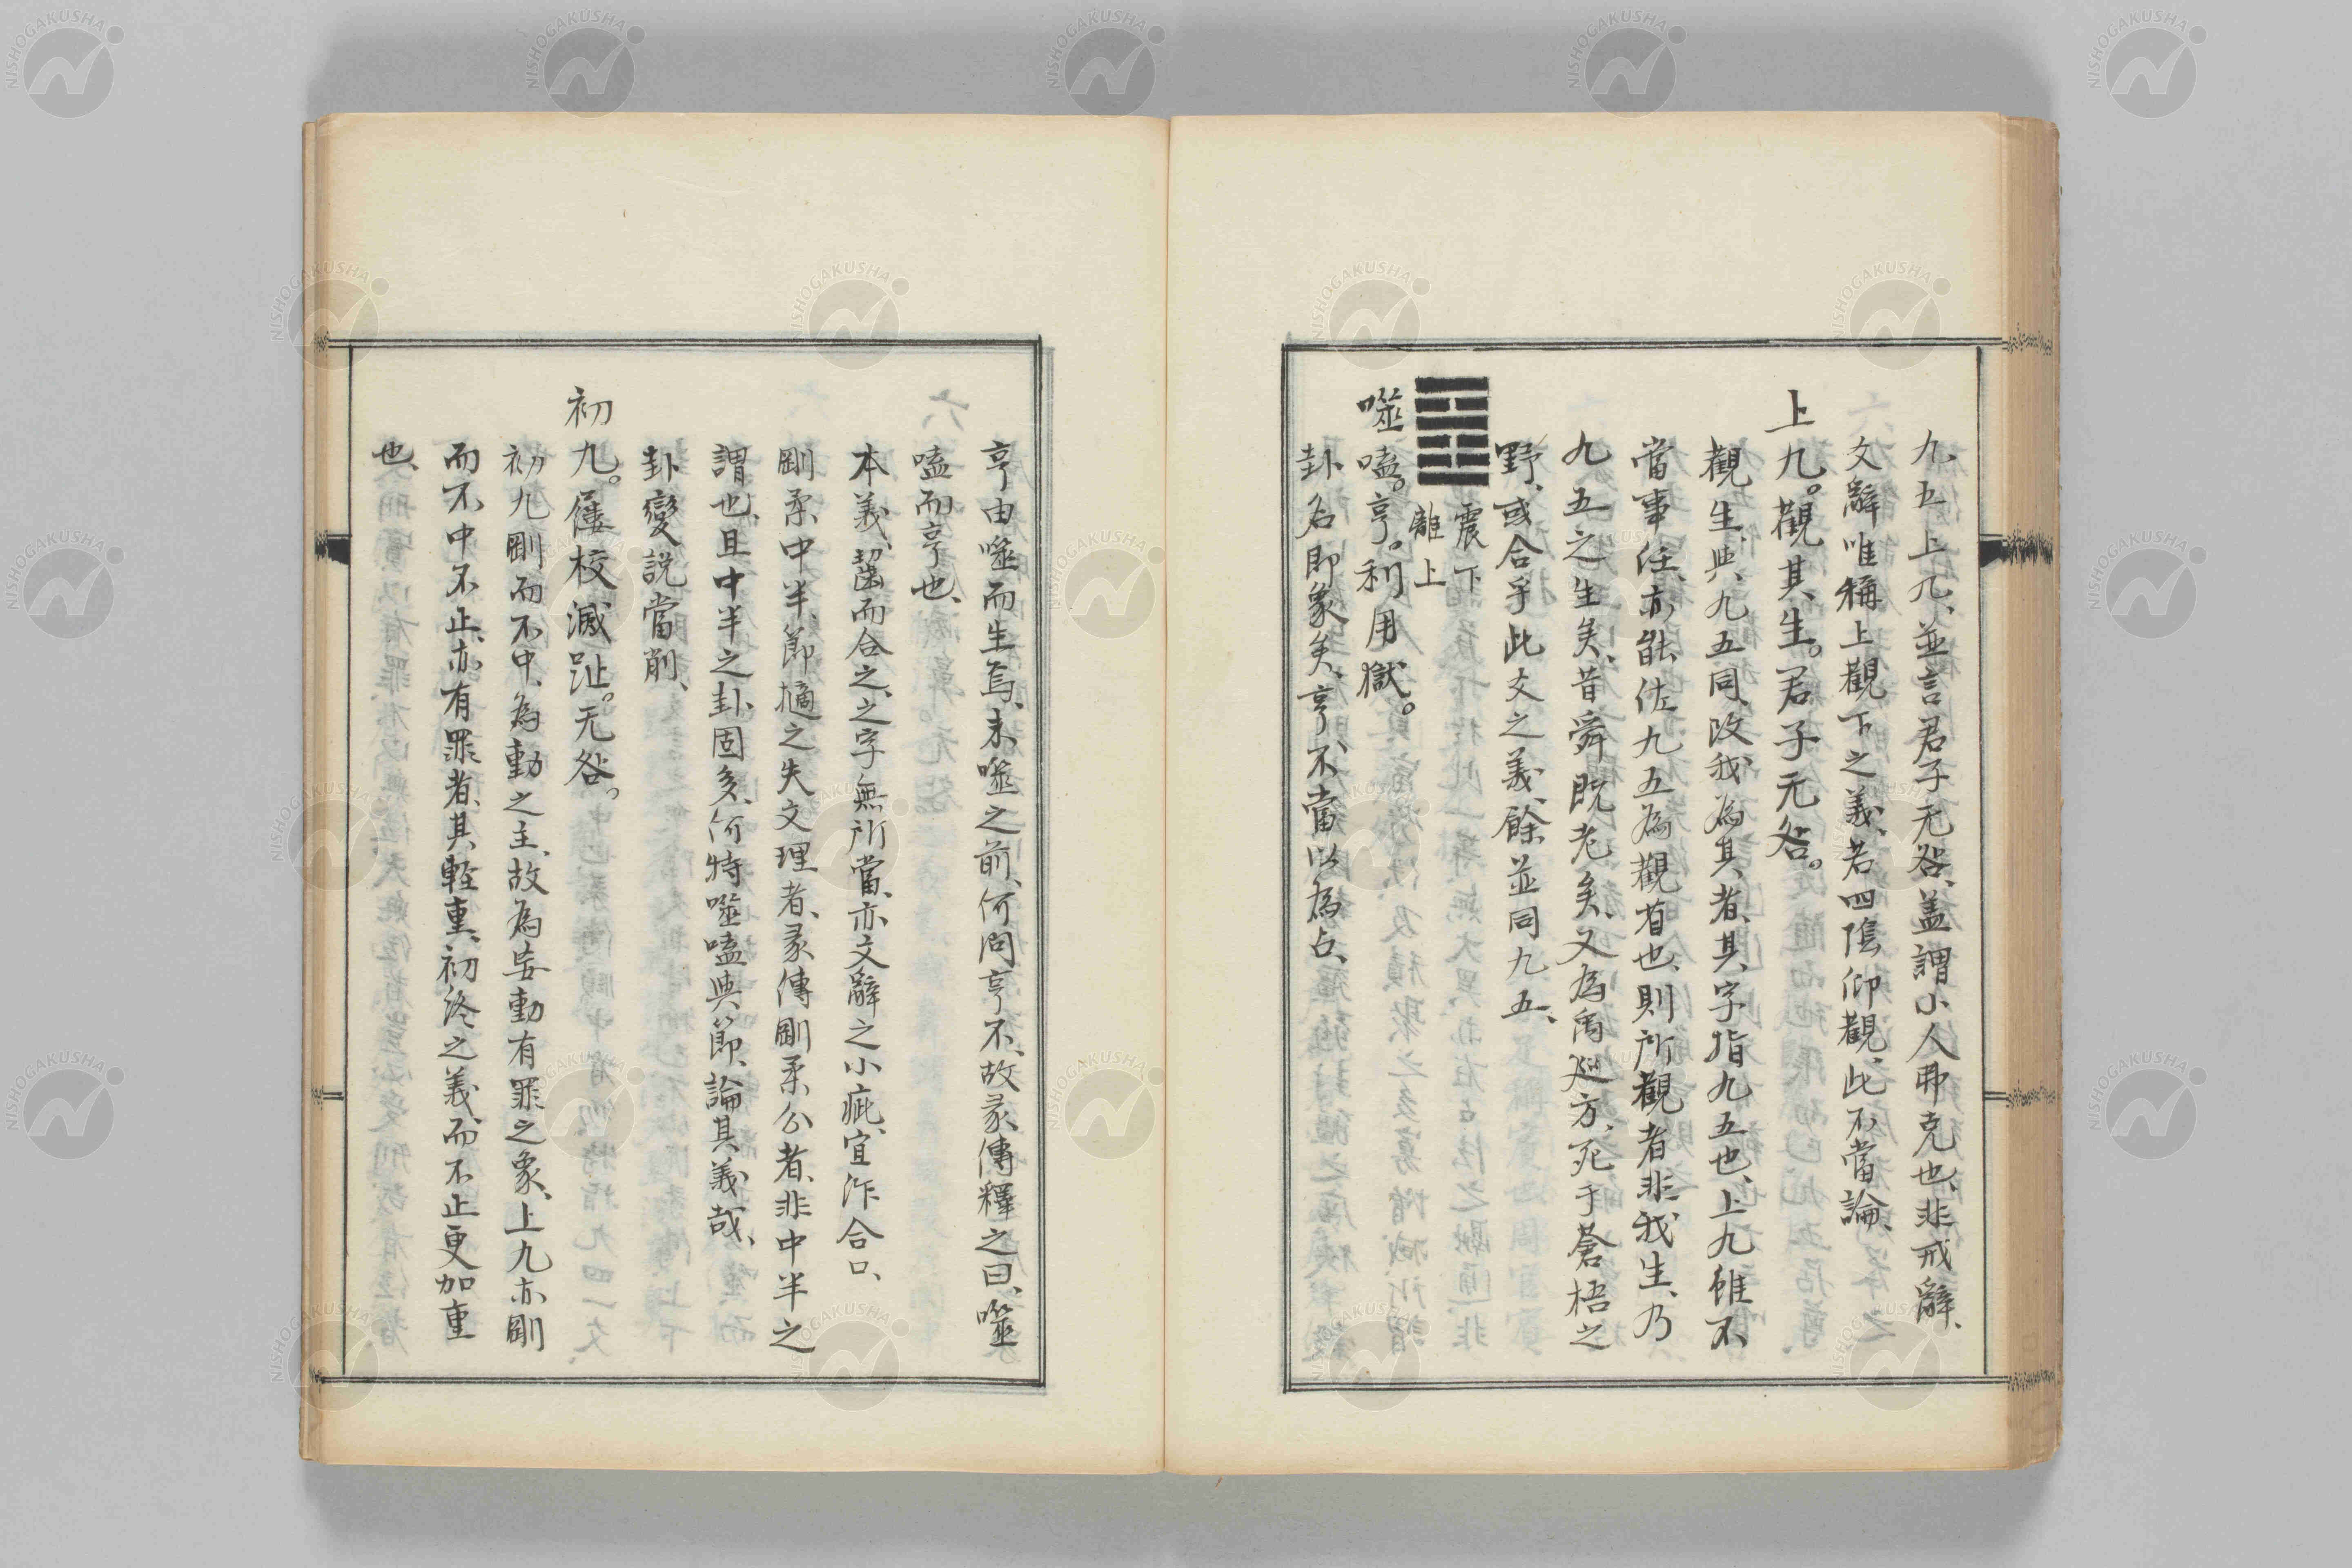 九五上九、並言君子无咎、盖謂小人弗克也、非戒辭、
文辭唯稱上觀下之義、若四陰仰觀、此不當論、
上九。觀其生。君子无咎。
觀生、與九五同、改我為其者、其字指九五也、上九雖不
當事任、亦能佐九五為觀者也、則所觀者非我生、乃
九五之生矣、昔舜既老矣、又為禹巡方、死乎蒼梧之
野、或合乎此爻之義、餘並同九五、
震下
離上
噬嗑。亨。利用獄。
卦名即象矣、亨、不當以為占、
亨由噬而生焉、未噬之前、何問亨不、故彖傳釋之曰、噬
嗑而亨也、
本義、齧而合之、之字無所當、亦文辭之小疵、宜作合口、
剛柔中半、節擿之失文理者、彖傳剛柔分者、非中半之
謂也、且中半之卦固多、何特噬嗑與節、論其義哉、
卦變說當削、
初九。屨校滅趾。无咎。
初九剛而不中、為動之主、故為妄動有罪之象、上九亦剛
而不中不止、亦有罪者、其輕重、初終之義、而不止更加重
也、
NISHOGAKUSHA